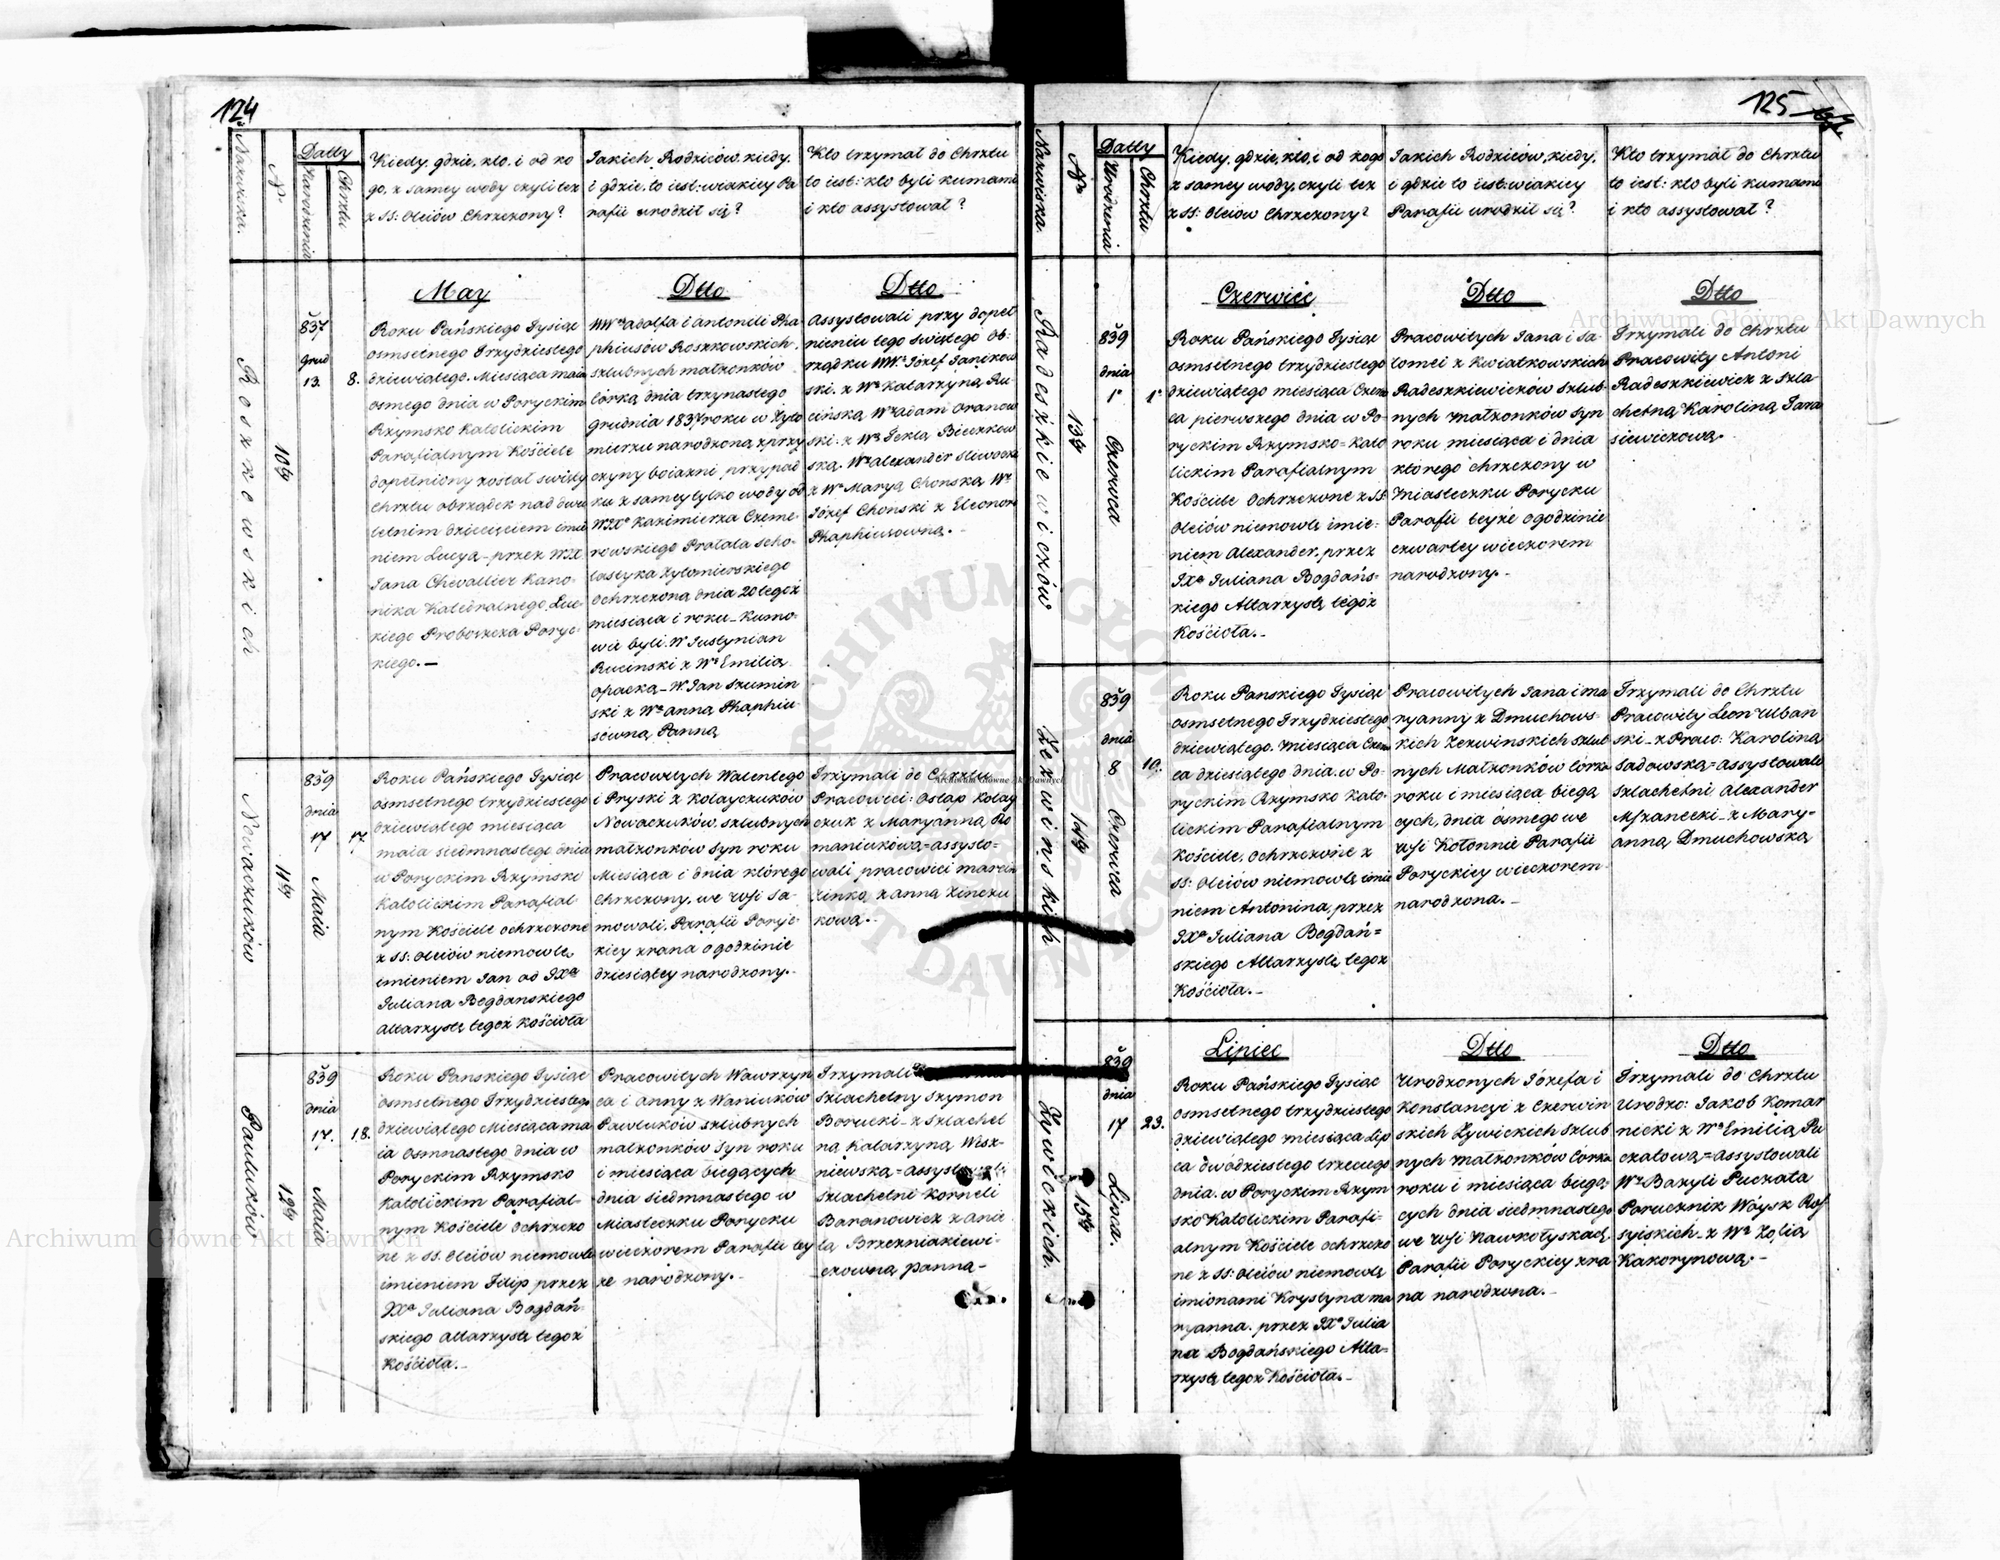 124
Nazwiska.
Nr
Datty
Narodzenia
Chrztu
Kiedy, gdzie, kto, i od ko
go, z samey wody czyli też
z SS: Oleiów Chrzczony?
Jakich Rodziców, kiedy,
i gdzie, to iest: w iakiey Pa
rafii urodził się?
Kto trzymał do Chrztu
to iest: kto byli kumami
i kto assystował?
Roszkowskich
10ty
837
Grud
13.
8.
May
Roku Pańskiego Tysiąc
osmsetnego Trzydziestego
dziewiątego. Miesiąca maia
osmego dnia w Poryckim
Rzymsko Katolickim
Parafialnym Kościele
dopełniony został święty
Chrztu obrządek nad dwu
letnim dziecięciem imie
niem Lucyą - przez WJX
Jana Chevallier Kano-
nika Katedralnego Łuc-
kiego Proboszcza Poryc-
kiego. —
Dtto
WWch Adolfa i Antonili Pha-
phiusów Roszkowskich,
szlubnych małżonków
córką dnia trzynastego
grudnia 1837 roku w Żyto
mierzu narodzoną, z przy
czyny boiazni przypad
ku z samey tylko wody od
WJXa Kazimierza Czeme-
rowskiego Prałata Scho-
lastyka Żytomierskiego
ochrzczoną dnia 20 tegoż
miesiąca i roku - Kumo-
wie byli: W Justynian
Rucinski z Wą Emilią
Opacką - W. Jan Szumin
ski z Wą Anną Phaphiu-
sówną Panną
Dtto
Assystowali przy dopeł
nieniu tego świętego Ob-
rządku WWi Józef Janikow
ski. z Wą Katarzyną Ru
cińską Wny Adam Oranow
ski: z Wą Teklą Bieczkow
ską. Wny Alexander Sliwowski
z Wą Maryą Chonską, Wny
Józef Chonski z Eleonorą
Phaphiusowną. -
Nowaczuków
11ty
839
dnia
17
Maia
17
Roku Pańskiego Tysiąc
ósmsetnego trzydziestego
dziewiątego miesiąca
maia siedmnastego dnia
w Poryckim Rzymsko
Katolickim Parafial
nym Kościele ochrzczone
z SS: Oleiów niemowle,
imieniem Jan od JXa
Juliana Bogdanskiego
Altarzystę tegoż Kościoła
Pracowitych Walentego
i Pryski z Kolayczuków
Nowaczuków szlubnych
małżonków syn roku
Miesiąca i dnia którego
Chrzczony, we wsi Sa-
mowoli, Parafii Poryc-
kiey zrana o godzinie
dziesiątey narodzony. -
Trzymali do Chrztu
Pracowici: Ostap Kolay
czuk z Maryanną Ro
maniukową = assysto=
wali pracowici marcin
Zinko, z Anną Zinczu
kową. -
Pauluków
12ty
839
dnia
17.
Maia
18.
Roku Panskiego Tysiąc
ósmsetnego Trzydziestego
dziewiątego Miesiąca ma
ia Osmnastego dnia w
Poryckim Rzymsko
Katolickim Parafial-
nym Kościele Ochrzczo
ne z SS. Oleiów niemowle
imieniem Filip przez
JXa Juliana Bogdań
skiego Altarzystę tegoż
Kościoła. -
Pracowitych Wawrzyń
ca i Anny z Waniuków
Pawluków szlubnych
małżonków Syn roku
i miesiąca bieżących
dnia siedmnastego w
Miasteczku Porycku
wieczorem Parafii tey
że narodzony. -
Trzymali
Szlachetny Szymon
Borucki - z Szlachet
ną Katarzyną Wisz-
niewską, = assystowali
Szlachetni Korneli
Baranowicz z Anie
lą Brzezniakiewi-
czowną panną -
125
Nazwiska.
Nr
Datty
Urodzenia
Chrztu
Kiedy, gdzie, kto, i od kogo
z samey wody, czyli też
z SS: Oleiów Chrzczony?
Jakich Rodziców, kiedy,
i gdzie to iest: w iakiey
Parafii urodził się?
Kto trzymał do Chrztu
to iest: kto byli kumami
i kto assystował?
Radeszkiewiczów
13ty
839
dnia
1o
Czerwca
1o
Czerwiec
Roku Pańskiego Tysiąc
osmsetnego trzydziestego
dziewiątego miesiąca Czerw
ca pierwszego dnia w Po-
ryckim Rzymsko-Kato
lickim Parafialnym
Kościele Ochrzczone z SS
Oleiów niemowle imie-
niem Alexander, przez
JXa Juliana Bogdańs-
kiego Altarzystę tegoż
Kościoła. -
Dtto
Pracowitych Jana i Sa-
lomei z Kwiatkowskich
Radeszkiewiczów szlub-
nych małżonków Syn
roku miesiąca i dnia
którego chrzczony w
Miasteczku Porycku
Parafii teyże o godzinie
czwartey wieczorem
narodzony. -
Dtto
Trzymali do Chrztu
Pracowity Antoni
Radeszkiewicz z Szla
chetną Karoliną Tara
siewiczową. -
Zerwinskich
14ty
839
dnia
8
Czerwca
10.
Roku Panskiego Tysiąc
osmsetnego Trzydziestego
dziewiątego. Miesiąca Czerw
ca dziesiątego dnia. w Po-
ryckim Rzymsko Kato-
lickim Parafialnym
Kościele, ochrzczone z
SS: Oleiów niemowle imie
niem Antonina, przez
JXa Juliana Bogdań=
skiego Altarzystę tegoż
Kościoła. -
Pracowitych Jana i ma
ryanny z Dmuchows-
kich Zerwinskich szlub
nych Małżonków Córka
roku i miesiąca bieżą
cych, dnia ósmego we
wsi Kołonnie Parafii
Poryckiey wieczorem
narodzona. -
Trzymali do Chrztu
Pracowity Leon Urban
ski - z Praco: Karoliną
Sadowską = assystowali
Szlachetni Alexander
- z Mary-
anną Dmuchowską
Żywickich.
15ty
839
dnia
17
Lipca.
23.
Lipiec
Roku Pańskiego Tysiąc
osmsetnego trzydziestego
dziewiątego miesiąca Lip
ca dwódziestego trzeciego
dnia. w Poryckim Rzym
sko Katolickim Parafi-
alnym Kościele ochrzczo
ne z SS: Oleiów niemowle
imionami Krystyna ma
ryanna. przez JXa Julia
na Bogdańskiego Alta-
rzystę tegoż Kościoła. -
Dtto
Urodzonych Józefa i
Konstancyi z Czerwin
skich Żywickich szlub
nych małżonków córka
roku i miesiąca bieżą
cych dnia siedmnastego
we wsi Hawrołyskach,
Parafii Poryckiey zra
na narodzona. -
Dtto
Trzymali do Chrztu
Urodzo: Jakob Komar
nicki z Wą Emilią Pu
czałową = assystowali
Wny Bazyli Puczała
Porucznik Wóysk Ros
syiskich - z Wą Zofią
Kakorynową. -
Archiwum Główne Akt Dawnych
Archiwum Główne Akt Dawnych
Archiwum Główne Akt Dawnych